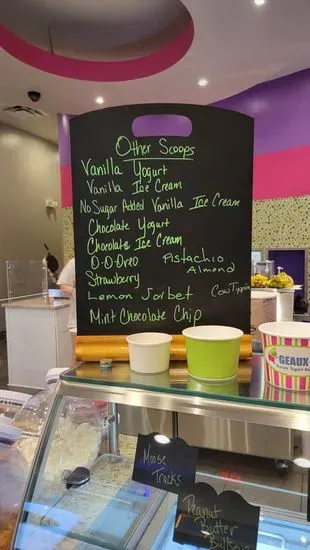 Other Scoops
Vanilla Yogurt
Vanilla Ice Cream
No Sugar Added Vanilla Ice Cream
Chocolate Yogurt
Chocolate Ice Cream
O-O-Oreo
Pistachio
Almond
Strawberry
Lemon Sorbet
Cow Tippin
Mint Chocolate Chip
GEAUX
Moose
Tracks
Peanut
Butter